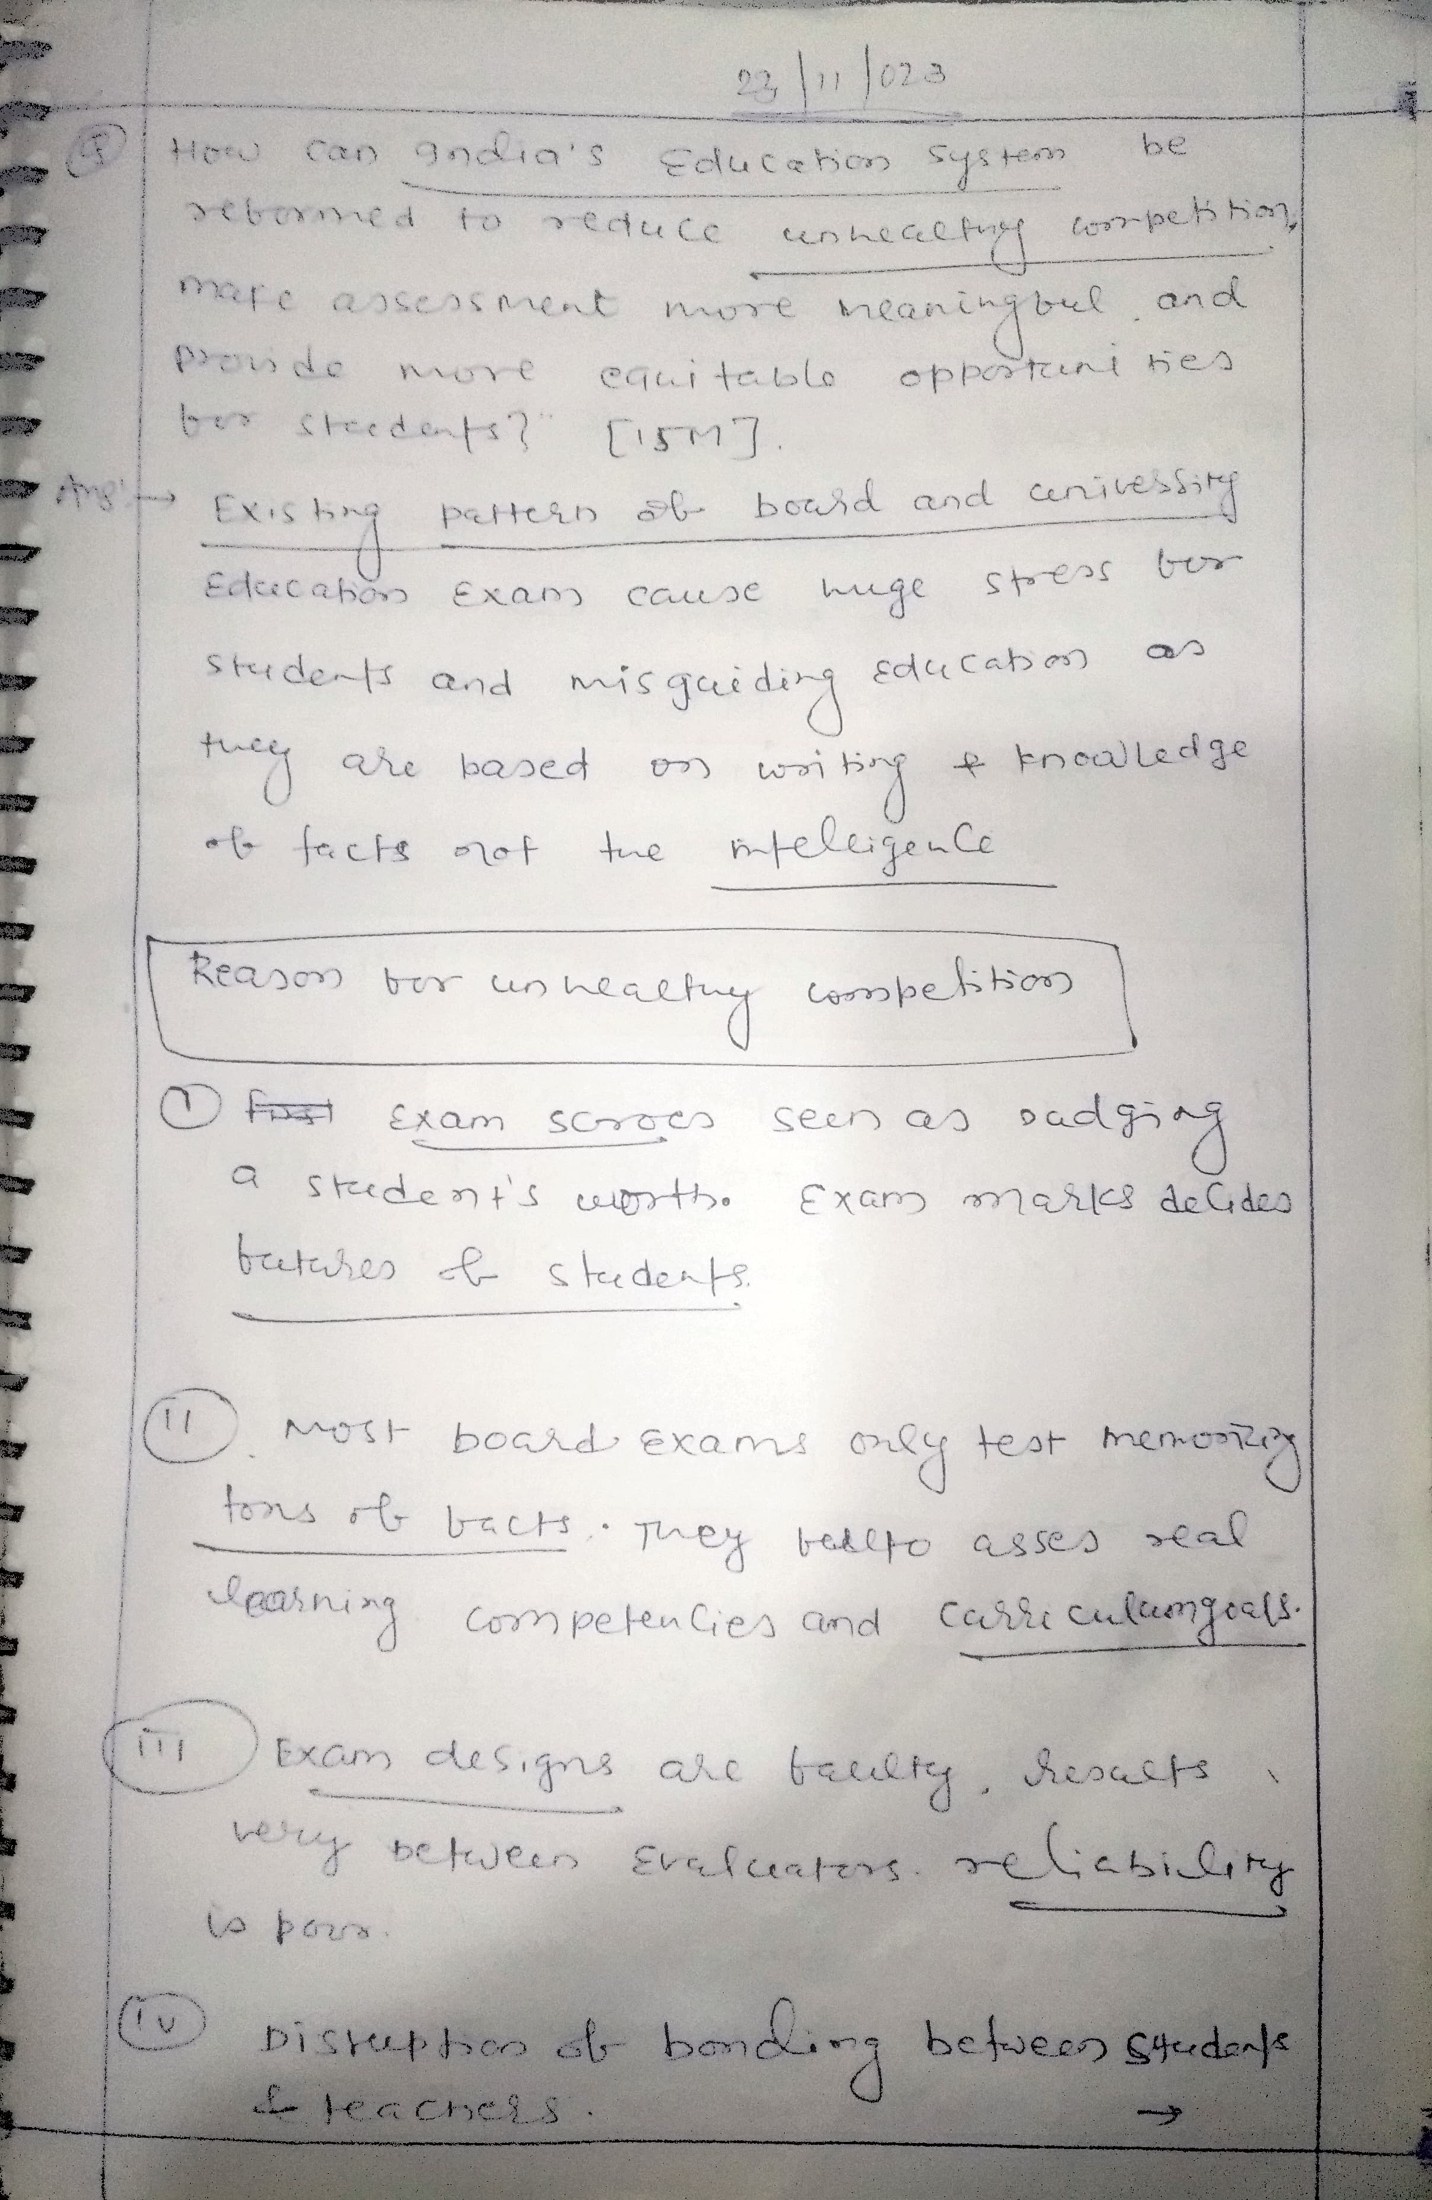 23/11/023
Q How can India's Education system be
reformed to reduce unhealthy competition,
make assessment more meaningful and
provide more equitable opportunities
for students?" [15M].
Ans:→ Existing pattern of board and univessity
Education Exam cause huge stress for
students and misguiding education as
they are based on writing & knowledge
of facts not the intelligence
Reason for unhealthy competition
(I) First Exam scroes seen as
a student's worth. Exam marks decides
futures of students.
(II) Most board exams only test memorizing
tons of facts. They failto asses real
learning competencies and curriculumgoals.
(III) Exam designs are faulty, results
very between Evaluators. reliability
is poor.
(IV) Disruption of bonding between students
& teachers. →